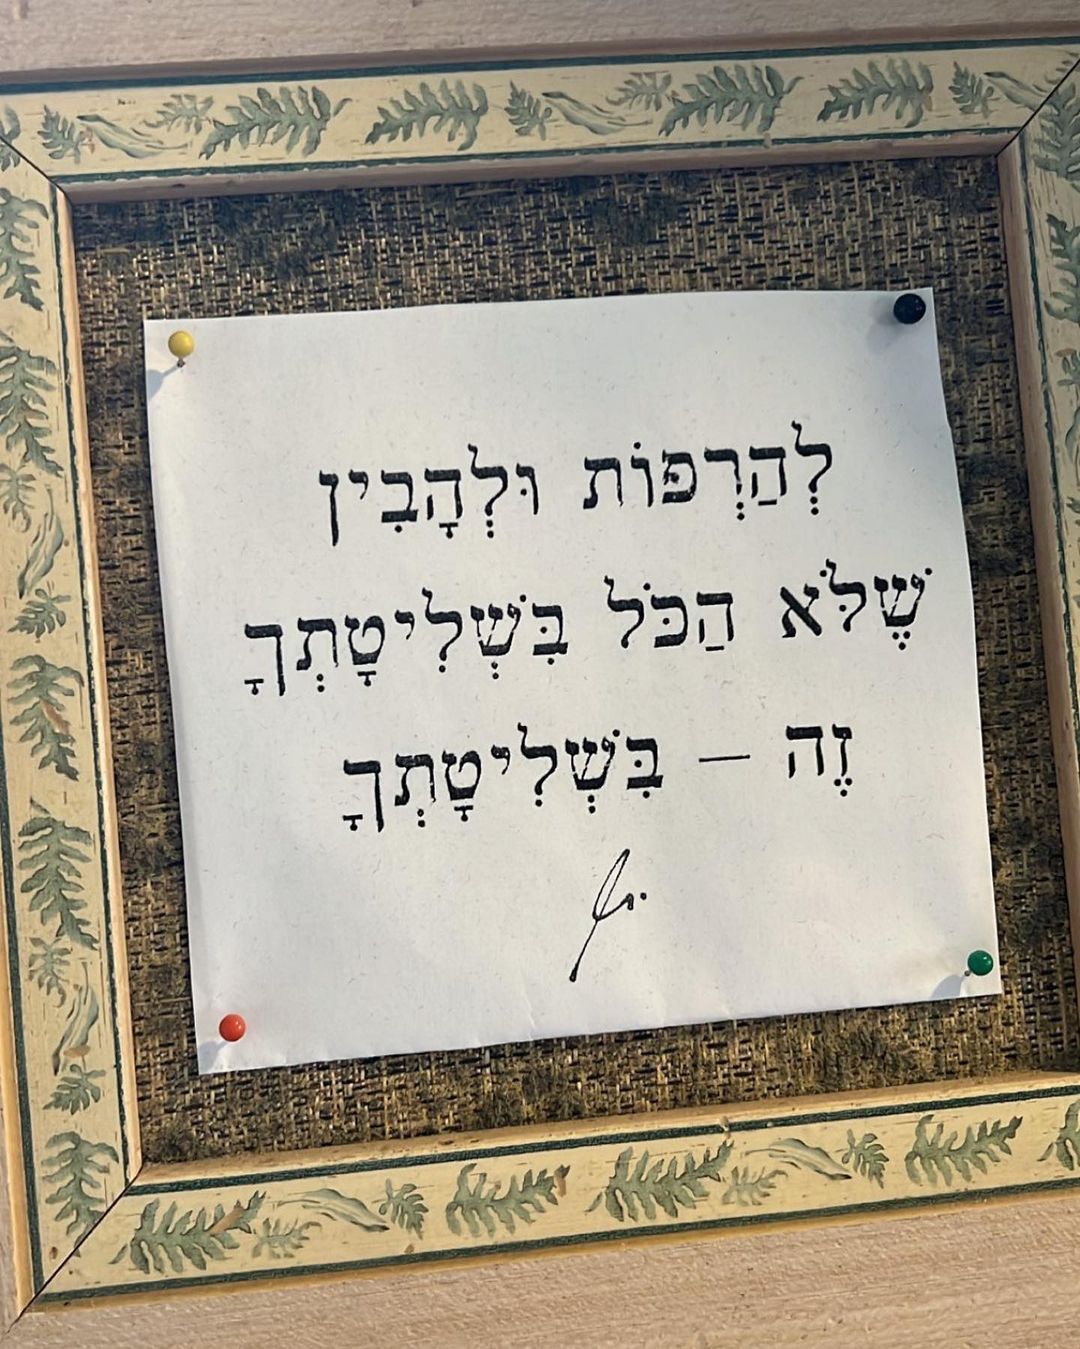 לְהַרְפּוֹת וּלְהָבִין
שֶׁלֹּא הַכֹּל בִּשְׁלִיטָתְךָ
זֶה – בִּשְׁלִיטָתְךָ